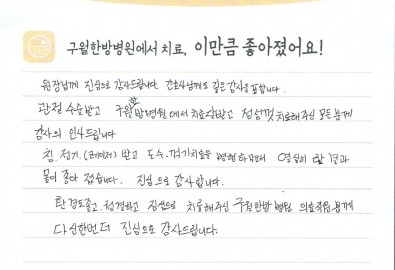 구월한방병원에서 치료, 이만큼 좋아졌어요!
원장님께 진심으로 감사드립니다. 간호사님께도 깊은 감사을 표합니다.
관절 수술받고 구월한방병원에서 치료 받고 정성껏 치료해주신 모든분께
감사의 인사드립니다
침. 전기. (레이저) 받고 도수. 꺽기치료을 병행하면서 열심히 한 결과
몸이 좋아 졌습니다. 진심으로 감사합니다.
환경도좋고 청결하고 진심으로 치료해주신 구월한방 병원 의료직원분께
다시한번더 진심으로 감사드립니다.